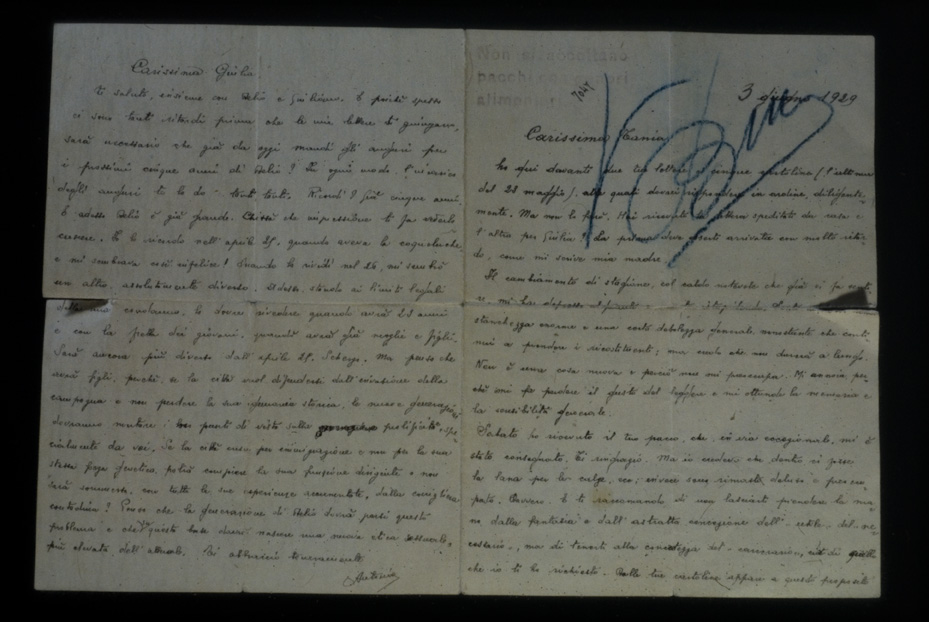 Carissima Giulia
ti saluto, insieme con Delio e Giuliano. E poiché spesso
ci sono tanti ritardi prima che le mie lettere ti giungano,
sarà necessario che già da oggi mandi gli auguri per
i prossimi cinque anni di Delio? In ogni modo l'incarico
degli auguri te lo do tanti tanti. Ricordi? Già cinque anni.
E adesso Delio è già grande. Chissà che impressione ti fa vederlo
crescere. Io lo ricordo nell'aprile 25, quando aveva la coqueluche
e mi sembrava così infelice! Quando lo rividi nel 26, mi sembrò
un altro, assolutamente diverso. Adesso, stando ai limiti legali
della mia condanna, lo dovrei rivedere quando avrà 23 anni
e con la fretta dei giovani, quando avrà già moglie e figli.
Sarà ancora più diverso dall'aprile 25. Scherzo. Ma penso che
avrà figli, perché, se la città vuol difendersi dall'invasione della
campagna e non perdere la sua egemonia storica, le nuove generazioni
dovranno mutare i punti di vista sulla prolificità
da voi. Se la città cresce per immigrazione e non per la sua
stessa forza genetica, potrà compiere la sua funzione dirigente o non
sarà sommersa, con tutte le sue esperienze accumulate, dalla conigliera
contadina? Penso che la generazione di Delio dovrà porsi questo
problema e che su questa base dovrà nascere una nuova etica sessuale,
più elevata dell'attuale. Ti abbraccio teneramente
Antonio
Non si accettano
pacchi con generi
alimentari
7047
3 giugno 1929
Carissima Tania,
ho qui davanti due tue lettere e cinque cartoline (l'ultima è
del 23 maggio), alle quali dovrei rispondere in ordine, diligente-
mente. Ma non lo farò. Hai ricevuto la lettera spedita da casa e
l'altra per Giulia? La prima deve esserti arrivata con molto ritar-
do, come mi scrive mia madre.
Il cambiamento di stagione, col caldo notevole che già si fa senti-
re, mi ha depresso
stanchezza enorme e una certa debolezza generale, nonostante che conti-
nui a prendere i ricostituenti; ma credo che non durerà a lungo.
Non è una cosa nuova e perciò non mi preoccupa. Mi annoia, per-
ché mi fa perdere il gusto del leggere e mi ottunde la memoria e
la sensibilità generale.
Sabato ho ricevuto il tuo pacco, che, in via eccezionale, mi è
stato consegnato. Ti ringrazio. Ma io credevo che dentro ci fosse
la lana per le calze, ecc; invece sono rimasto deluso e preoccu-
pato. Davvero. Io ti raccomando di non lasciarti prendere la ma-
no dalla fantasia e dall'astratta concezione dell'utile e del ne-
cessario, ma di tenerti alla concretezza del «carcerario», cioè di quello
che io ti ho richiesto. Dalle tue cartoline appare a questo proposito